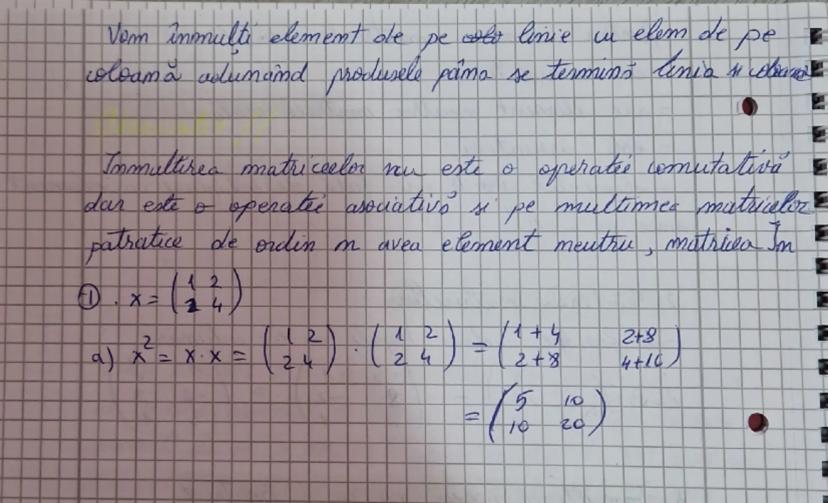 Vom înmulți element de pe linie cu elem de pe
coloană adunând produsele pâna se termină linia si coloana
Inmultirea matricelor nu este o operatie comutativă
dar este o operatie asociativă si pe multimea matricelor
patratice de ordin n avea element neutru, matricea In
① . x = (1 2
2 4)
a) x² = x · x = (1 2 · (1 2 = (1+4 2+8
2 4) 2 4) 2+8 4+16)
= (5 10
10 20)